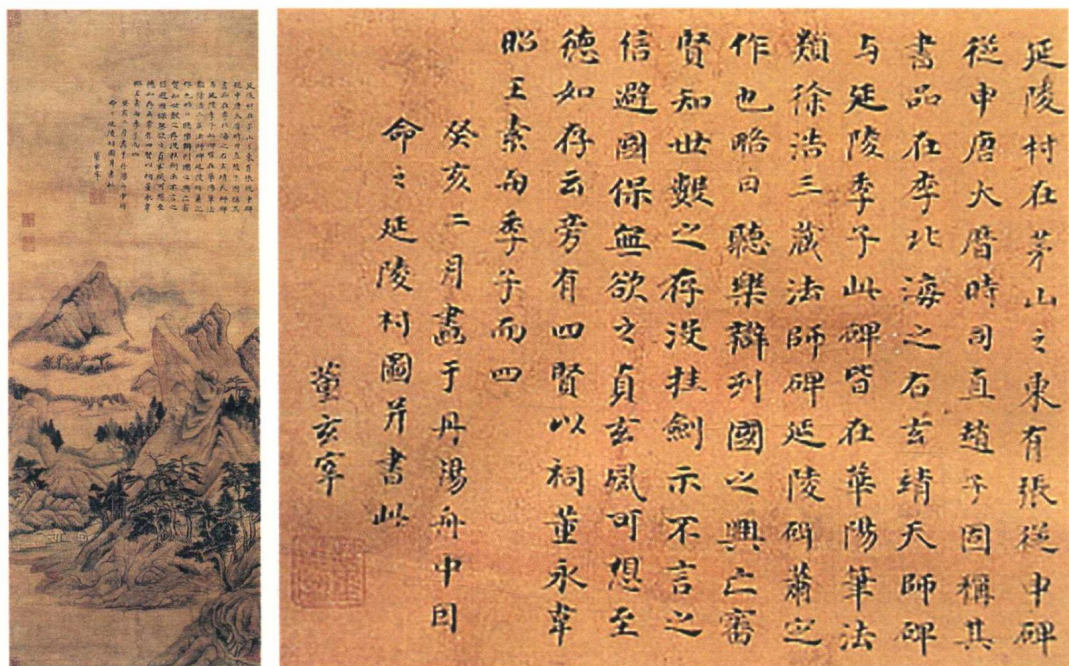 延陵村在茅山之東有張從申碑
從申唐大曆時司直趙子固稱其
書品在李北海之右玄靖天師碑
与延陵季子此碑皆在華陽筆法
類徐浩三藏法師碑延陵碑蕭定
作也略曰聽樂辯列國之興亡審
賢知世數之存没挂劍示不言之
信避國保無欲之貞玄風可想至
德如存云旁有四賢以祠董永韋
昭王素而季子而四
癸亥二月畫于丹陽舟中因
命之延陵村圖并書此
董玄宰